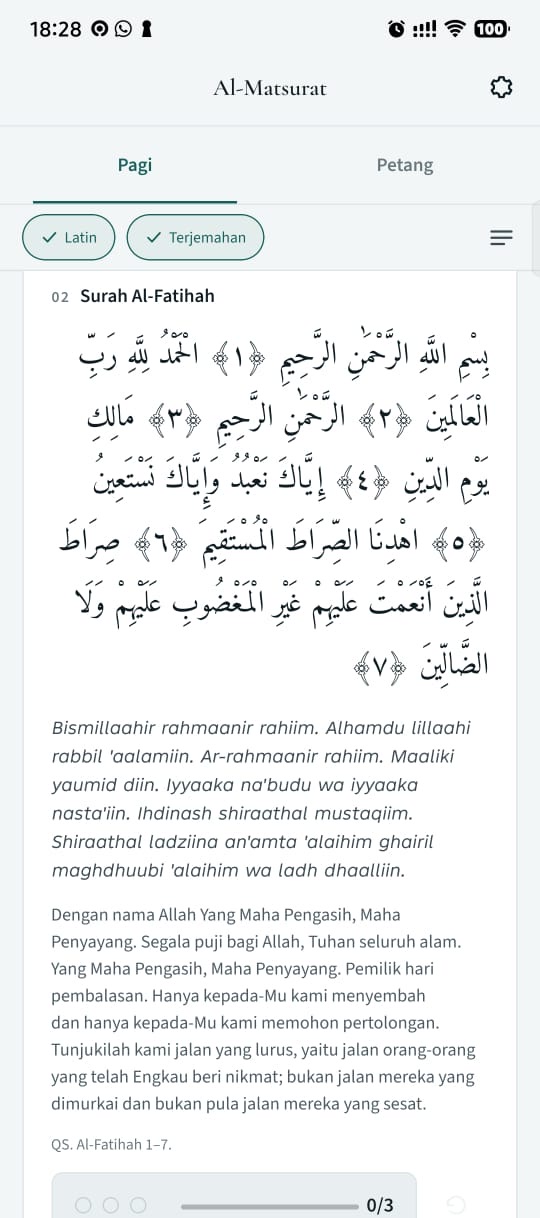 18:28
100
Al-Matsurat
Pagi
Petang
Latin
Terjemahan
02 Surah Al-Fatihah
بِسْمِ اللَّهِ الرَّحْمَٰنِ الرَّحِيمِ ﴿١﴾ الْحَمْدُ لِلَّهِ رَبِّ
الْعَالَمِينَ ﴿٢﴾ الرَّحْمَٰنِ الرَّحِيمِ ﴿٣﴾ مَالِكِ
يَوْمِ الدِّينِ ﴿٤﴾ إِيَّاكَ نَعْبُدُ وَإِيَّاكَ نَسْتَعِينُ
﴿٥﴾ اهْدِنَا الصِّرَاطَ الْمُسْتَقِيمَ ﴿٦﴾ صِرَاطَ
الَّذِينَ أَنْعَمْتَ عَلَيْهِمْ غَيْرِ الْمَغْضُوبِ عَلَيْهِمْ وَلَا
الضَّالِّينَ ﴿٧﴾
Bismillaahir rahmaanir rahiim. Alhamdu lillaahi
rabbil 'aalamiin. Ar-rahmaanir rahiim. Maaliki
yaumid diin. Iyyaaka na'budu wa iyyaaka
nasta'iin. Ihdinash shiraathal mustaqiim.
Shiraathal ladziina an'amta 'alaihim ghairil
maghdhuubi 'alaihim wa ladh dhaalliin.
Dengan nama Allah Yang Maha Pengasih, Maha
Penyayang. Segala puji bagi Allah, Tuhan seluruh alam.
Yang Maha Pengasih, Maha Penyayang. Pemilik hari
pembalasan. Hanya kepada-Mu kami menyembah
dan hanya kepada-Mu kami memohon pertolongan.
Tunjukilah kami jalan yang lurus, yaitu jalan orang-orang
yang telah Engkau beri nikmat; bukan jalan mereka yang
dimurkai dan bukan pula jalan mereka yang sesat.
QS. Al-Fatihah 1–7.
0/3